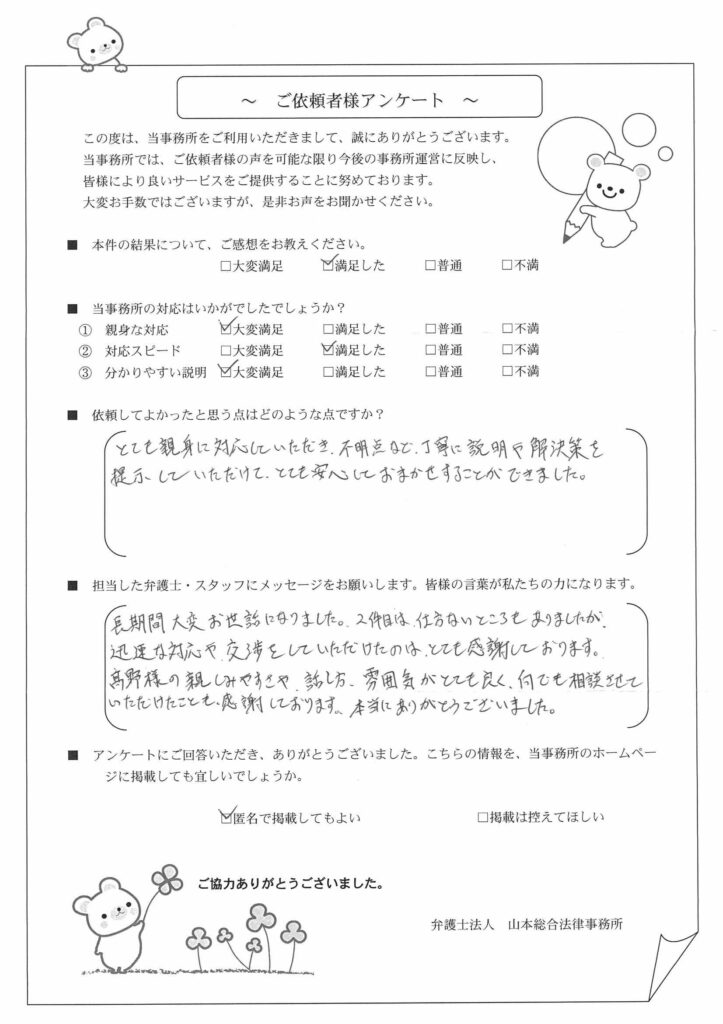 ～　ご依頼者様アンケート　～
この度は、当事務所をご利用いただきまして、誠にありがとうございます。
当事務所では、ご依頼者様の声を可能な限り今後の事務所運営に反映し、
皆様により良いサービスをご提供することに努めております。
大変お手数ではございますが、是非お声をお聞かせください。
■　本件の結果について、ご感想をお教えください。
□大変満足　☑満足した　□普通　□不満
■　当事務所の対応はいかがでしたでしょうか？
①　親身な対応　☑大変満足　□満足した　□普通　□不満
②　対応スピード　□大変満足　☑満足した　□普通　□不満
③　分かりやすい説明　☑大変満足　□満足した　□普通　□不満
■　依頼してよかったと思う点はどのような点ですか？
とても親身に対応していただき、不明点など、丁寧に説明や解決策を
提示していただけて、とても安心しておまかせすることができました。
■　担当した弁護士・スタッフにメッセージをお願いします。皆様の言葉が私たちの力になります。
長期間大変お世話になりました。2件目は、仕方ないところもありましたが、
迅速な対応や、交渉をしていただけたのは、とても感謝しております。
高野様の親しみやすさや、話し方、雰囲気がとても良く、何でも相談させて
いただけたことも、感謝しております。本当にありがとうございました。
■　アンケートにご回答いただき、ありがとうございました。こちらの情報を、当事務所のホームペー
ジに掲載しても宜しいでしょうか。
☑匿名で掲載してもよい　□掲載は控えてほしい
ご協力ありがとうございました。
弁護士法人　山本総合法律事務所